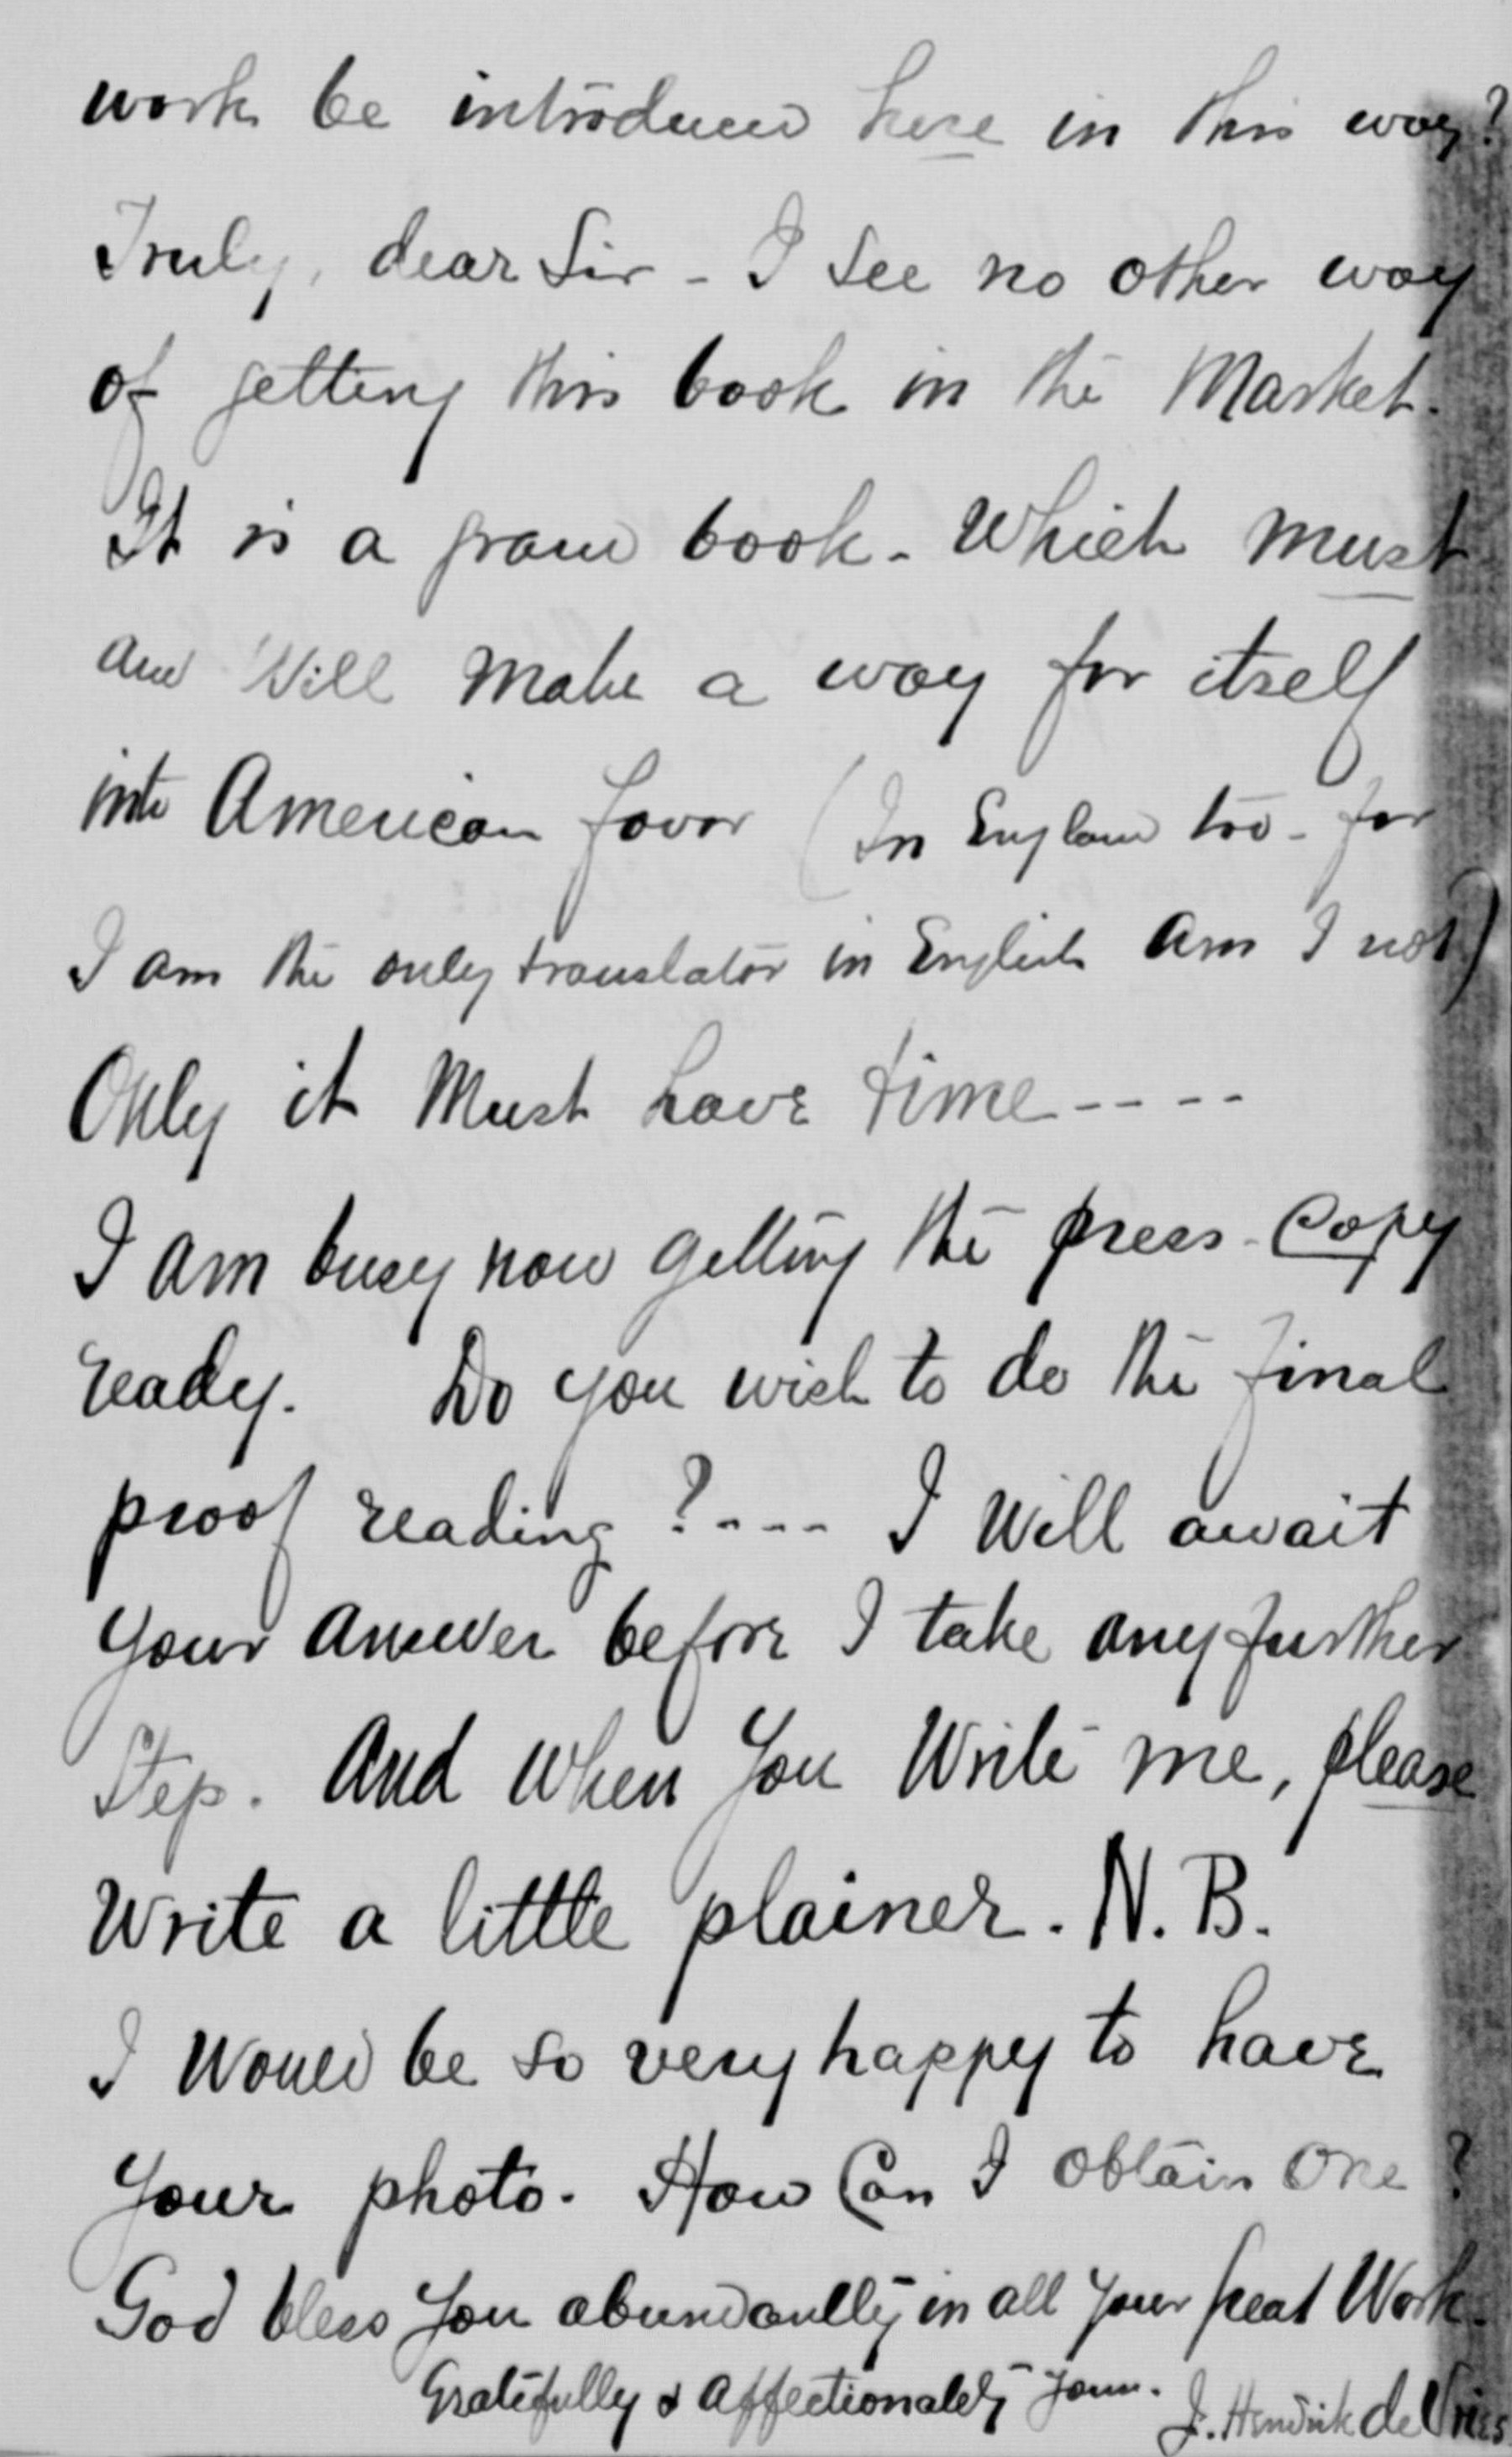 work be introduced here in this way?
Truly, dear Sir - I see no other way
of getting this book in the Market.
It is a grand book - Which must
and Will make a way for itself
into American favor (In England too - for
I am the only translator in English am I not)
Only it Must have time - - - -
I am busy now getting the press-Copy
ready. Do you wish to do the final
proof reading ? - - - - I Will await
your answer before I take any further
Step. And when you Write me, please
Write a little plainer. N.B.
I Would be so very happy to have
your photo. How Can I obtain One ?
God bless you abundantly in all your great Work.
Gratefully & Affectionately yours.
J. Hendrik de Vries